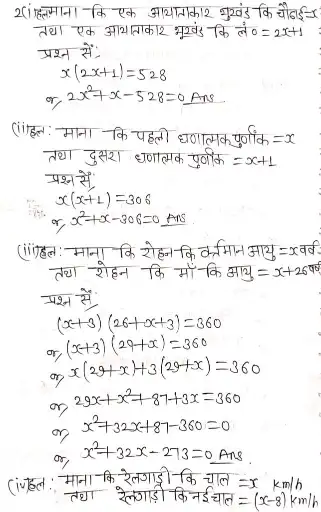 2(i)हल: माना कि एक आयाताकार भुखंड कि चौड़ाई=x
तथा एक आयाताकार भुखंड कि लं० = 2x+1
प्रश्न सें:
x(2x+1)=528
or, 2x²+x-528=0 Ans
(ii)हल: माना कि पहली धणात्मक पुर्णांक = x
तथा दुसरा धणात्मक पुर्णांक = x+1
प्रश्न सें:
x(x+1)=306
or, x²+x-306=0 Ans
(iii)हल: माना कि रोहन कि वर्तमान आयु = x वर्ष
तथा रोहन कि माँ कि आयु = x+26वर्ष
प्रश्न सें:
(x+3)(26+x+3)=360
or, (x+3)(29+x)=360
or, x(29+x)+3(29+x)=360
or, 29x+x²+87+3x=360
or, x²+32x+87-360=0
or, x²+32x-273=0 Ans.
(iv)हल: माना कि रेलगाड़ी कि चाल = x km/h
तथा रेलगाड़ी कि नई चाल = (x-8) km/h